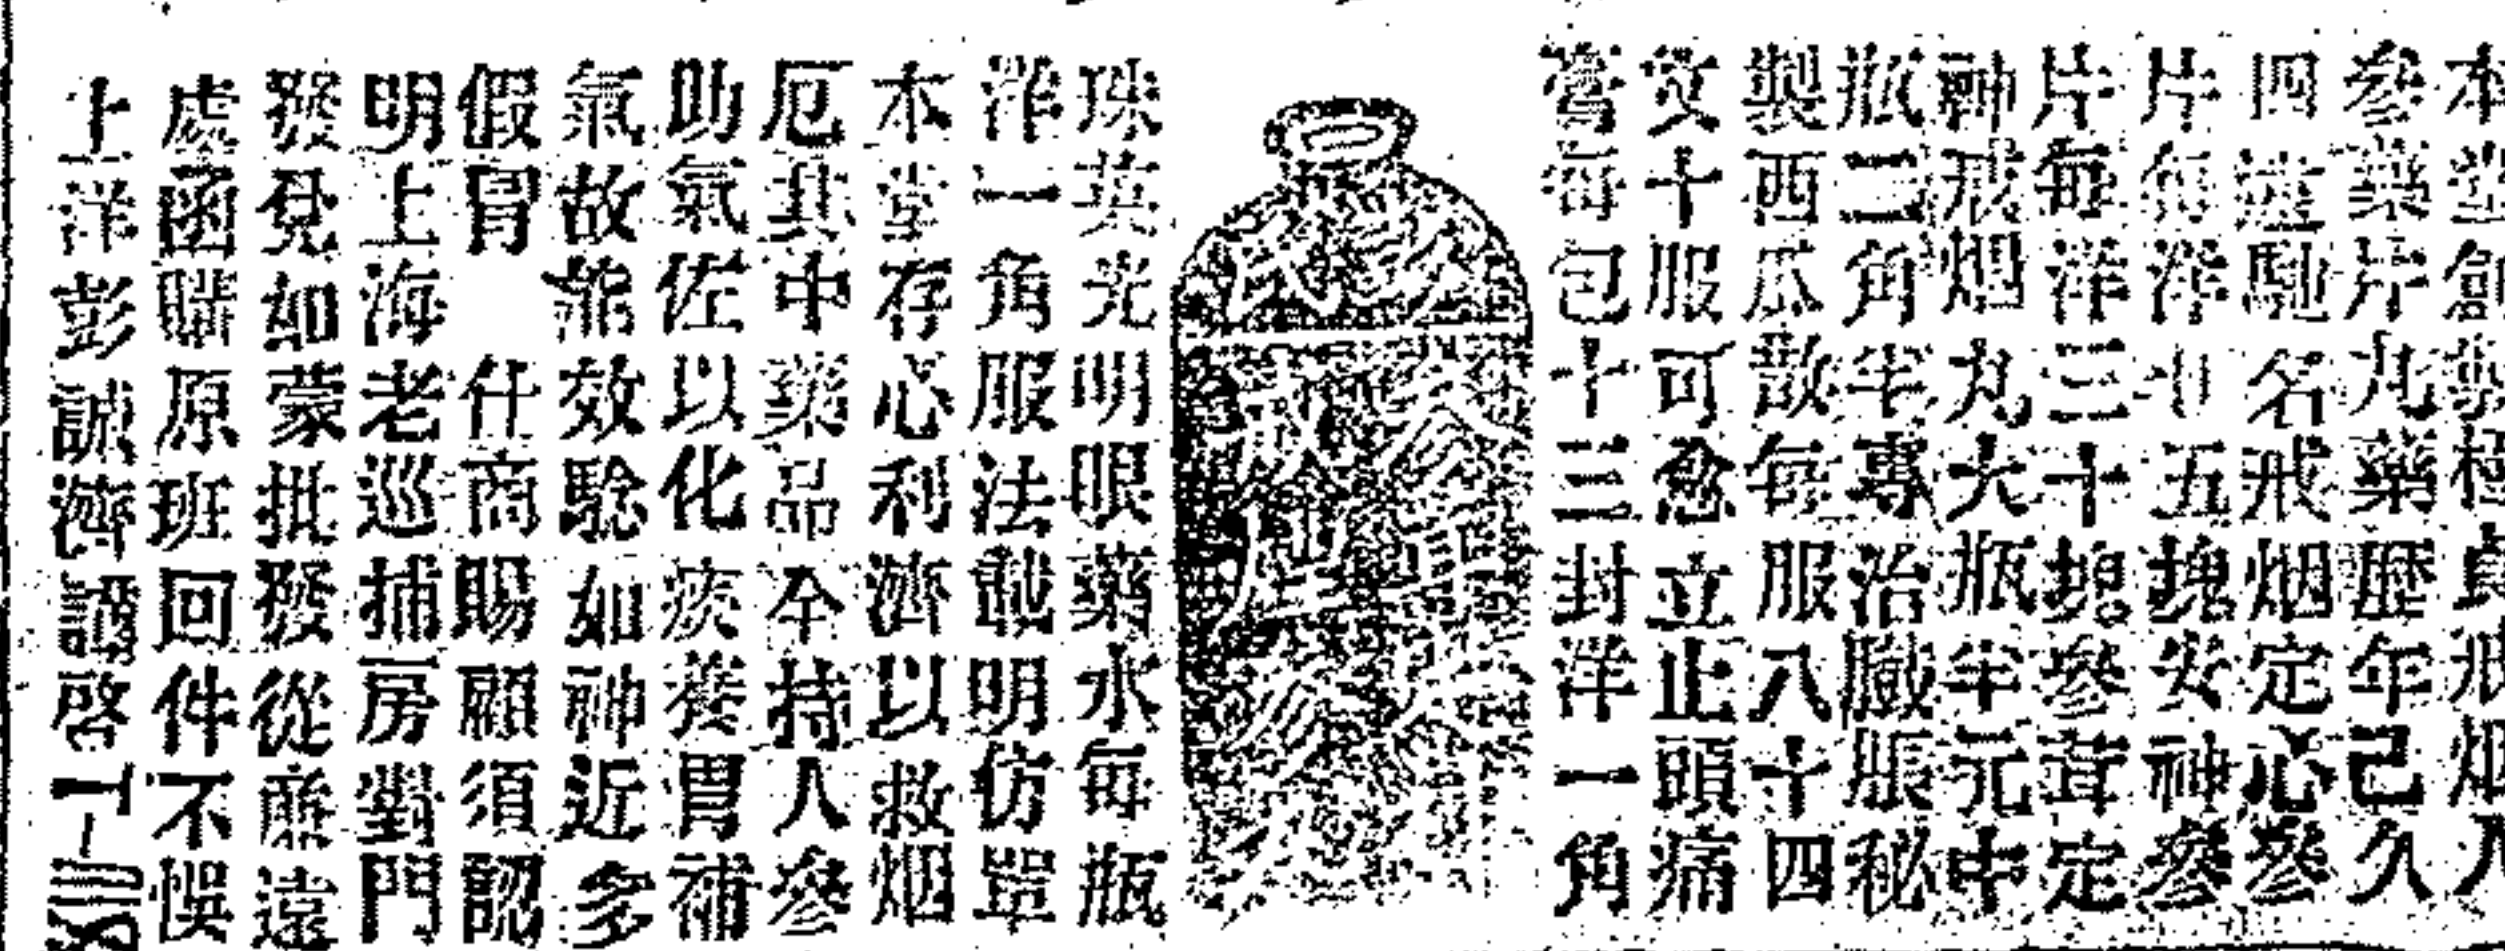 本堂創製極貞戒烟人
參藥片丸藥歷年已久
四遠馳名戒烟定心參
片每洋一五塊安神參
片每洋三十塊參茸定
神戒烟丸大瓶半元中
瓶二角半專治臌脹秘
製西瓜散每服八十四
文十服可愈立止頭痛
膏每包十三封洋一角
珠英光明眼藥水每瓶
洋一角服法載明仿單
本堂存心利濟以救烟
厄其中藥品全持人參
助氣佐以化痰養胃補
氣故能效驗如神近多
假冒 仕商賜顧須認
明上海老巡捕房對門
發兌如蒙批發從廉遠
處函購原班回件不悞
上洋彭誠濟謹啓